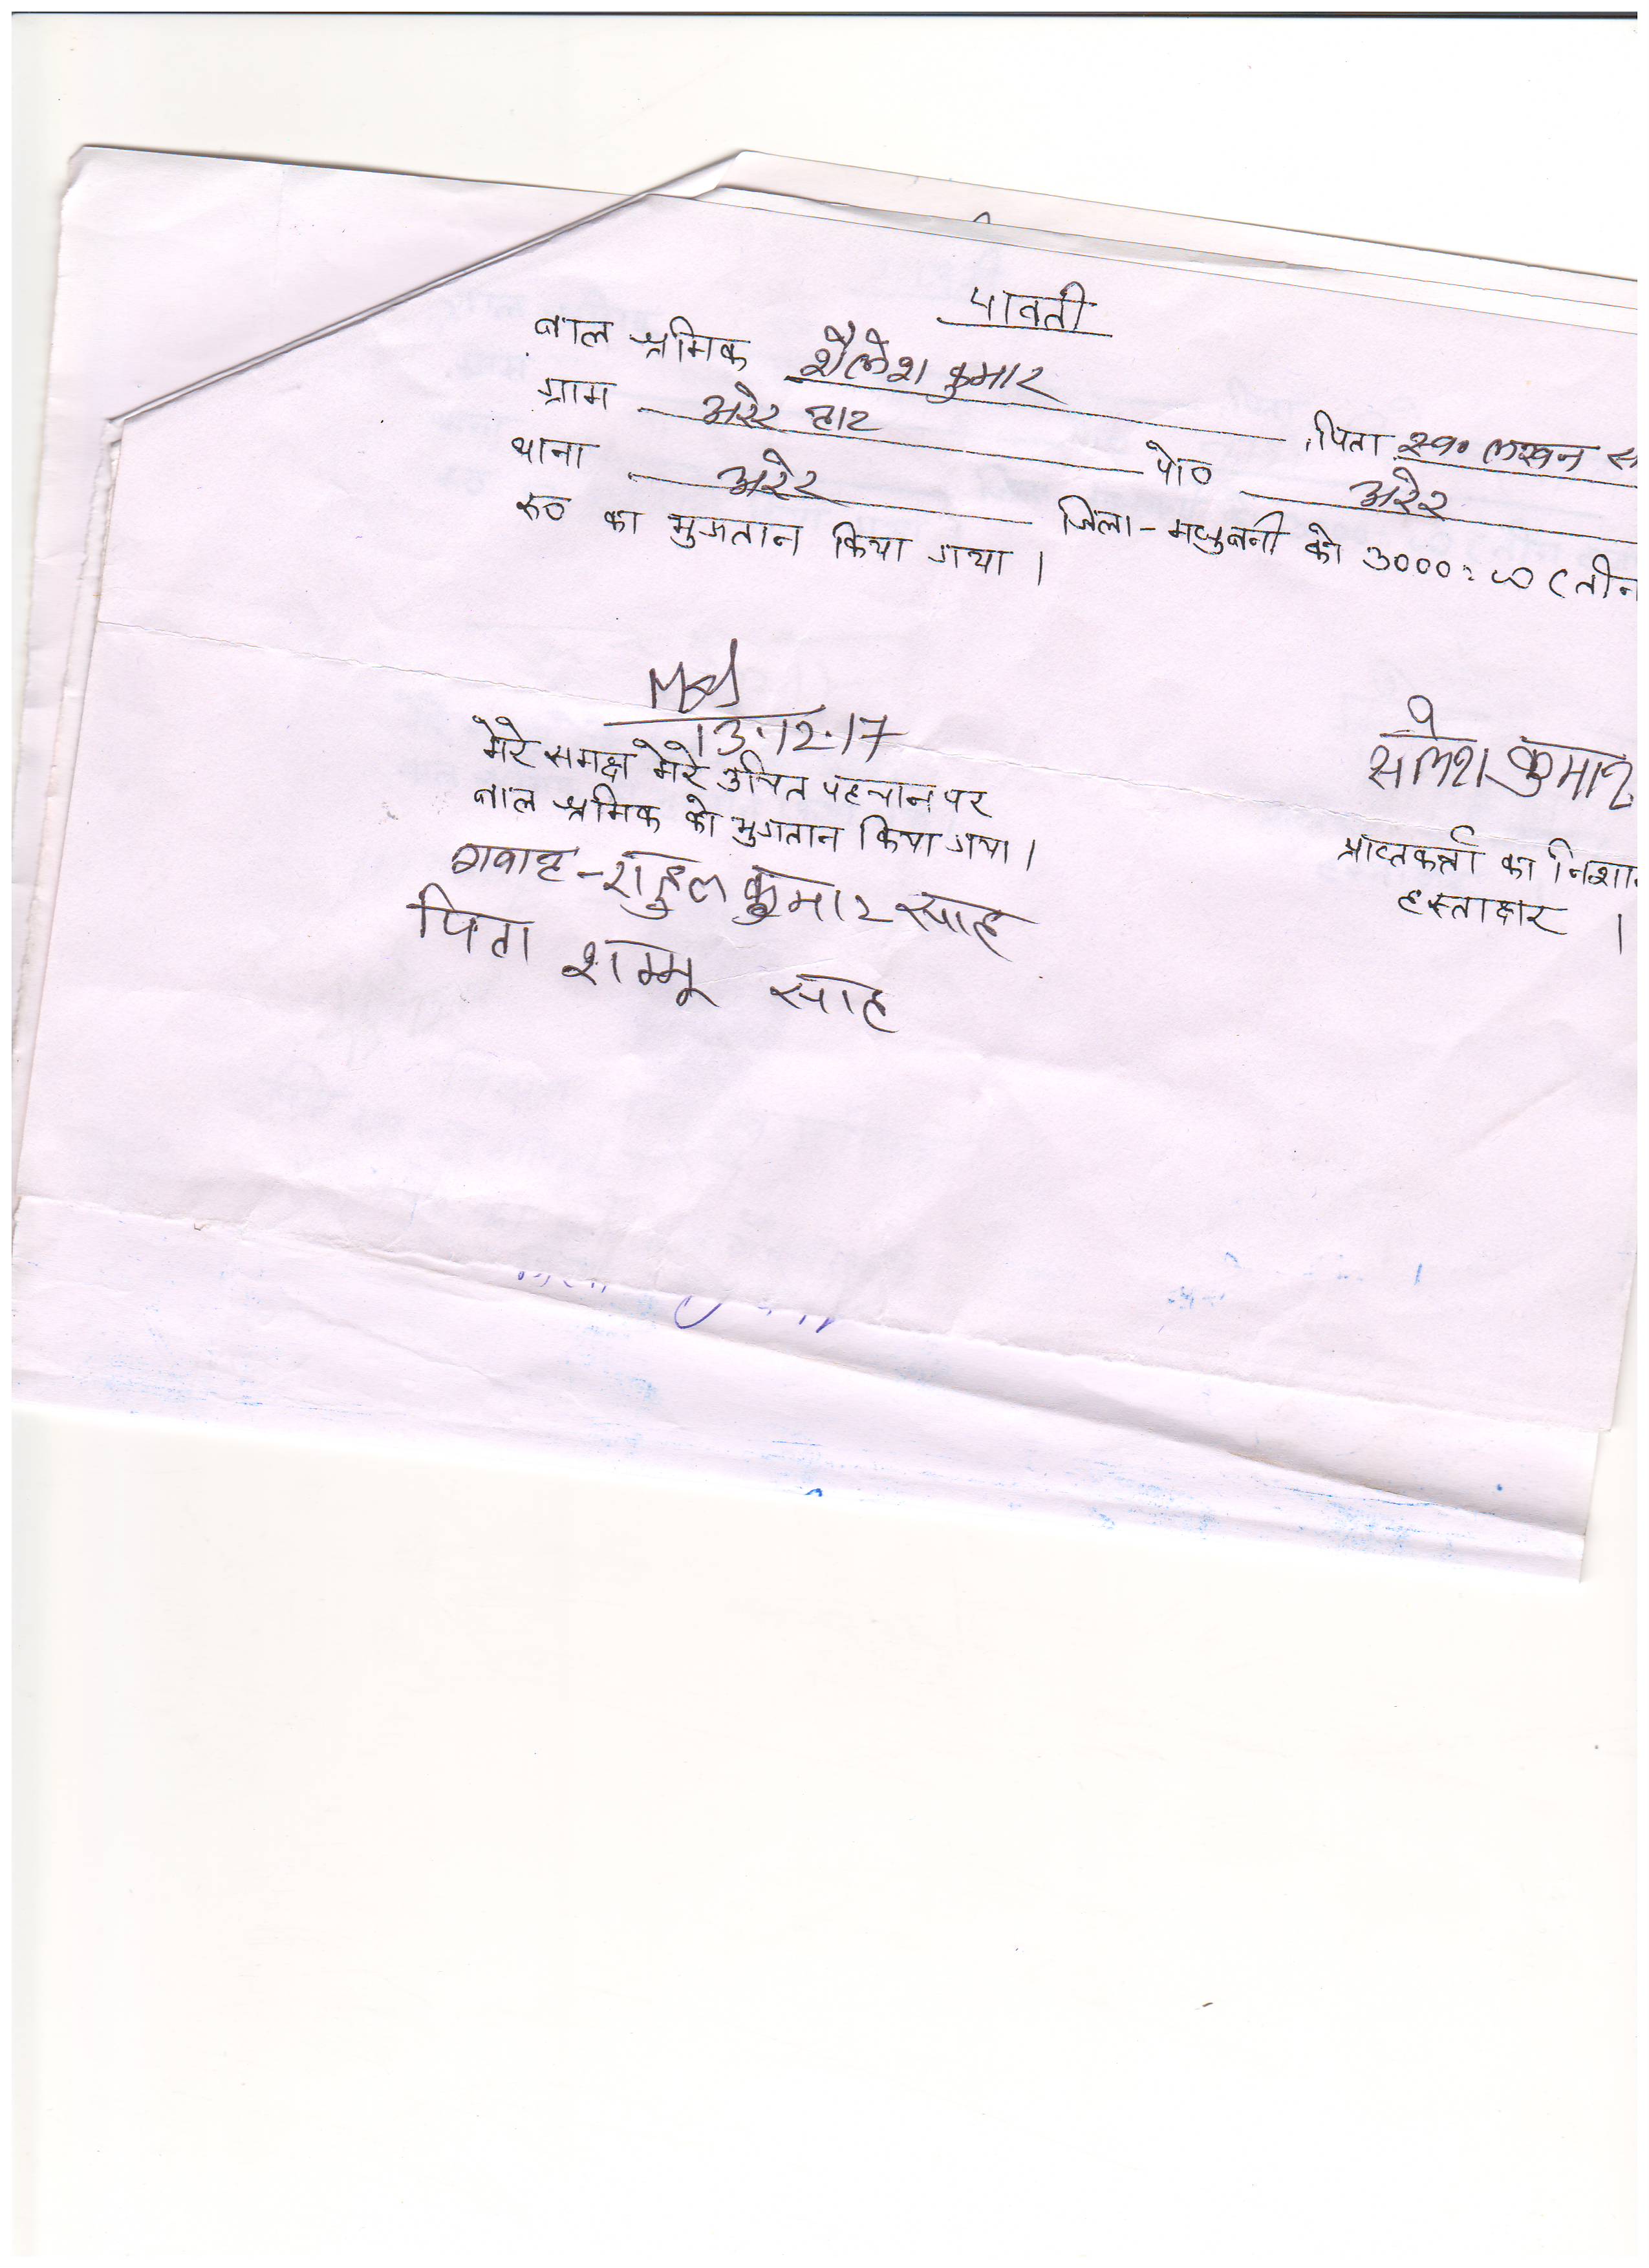 पावती
बाल श्रमिक शैलेश कुमार पिता स्व० लखन
ग्राम अरेर हाट पो० अरेर
थाना अरेर जिला-मधुबनी को 3000=00 (तीन
रू० का भुगतान किया गया।
13.12.17
मेरे समक्ष मेरे उचित पहचान पर
बाल श्रमिक को भुगतान किया गया।
गवाह-राहुल कुमार साह
पिता शम्भू साह
सेलेश कुमार
प्राप्तकर्त्ता का
हस्ताक्षर ।